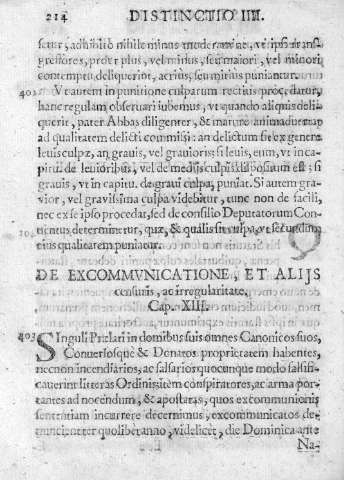 214 DISTINCTIO IIII.
setur, adhibito nihilominus moderamine, vt ipsi transgressores, prout plus, vel minus, seu maiori, vel minori
contemptu deliquerint, acrius, seu mitius puniantur.
402 Vt autem in punitione culparum rectius procedatur,
hanc regulam obseruari iubemus, vt quando aliquis deliquerit, pater Abbas diligenter, & mature animaduertat
ad qualitatem delicti commissi: an delictum sit ex genere
leuis culpæ, an grauis, vel grauioris; si leuis, eum, vt in capitu. de leuioribus, vel de medijs culpis dispositum est; si
grauis, vt in capitu. de graui culpa, puniat. Si autem grauior, vel grauissima culpa videbitur, tunc non de facili,
nec ex se ipso procedat, sed de consilio Deputatorum Conuentus determinetur, quæ, & qualis sit culpa, vt secundum
eius qualitatem puniatur.
DE EXCOMMVNICATIONE, ET ALIJS
censuris, ac irregularitate,
Cap. XIII.
403 SInguli Prælati in domibus suis omnes Canonicos suos,
Conuersosque & Donatos proprietatem habentes,
necnon incendiarios, ac falsarios quocunque modo falsificauerint litteras Ordinis, item conspiratores, ac arma portantes ad nocendum, & apostatas, quos excommunicationis
sententiam incurrere decernimus, excommunicatos denuncient er quolibet anno, videlicet, die Dominica ante
Na-